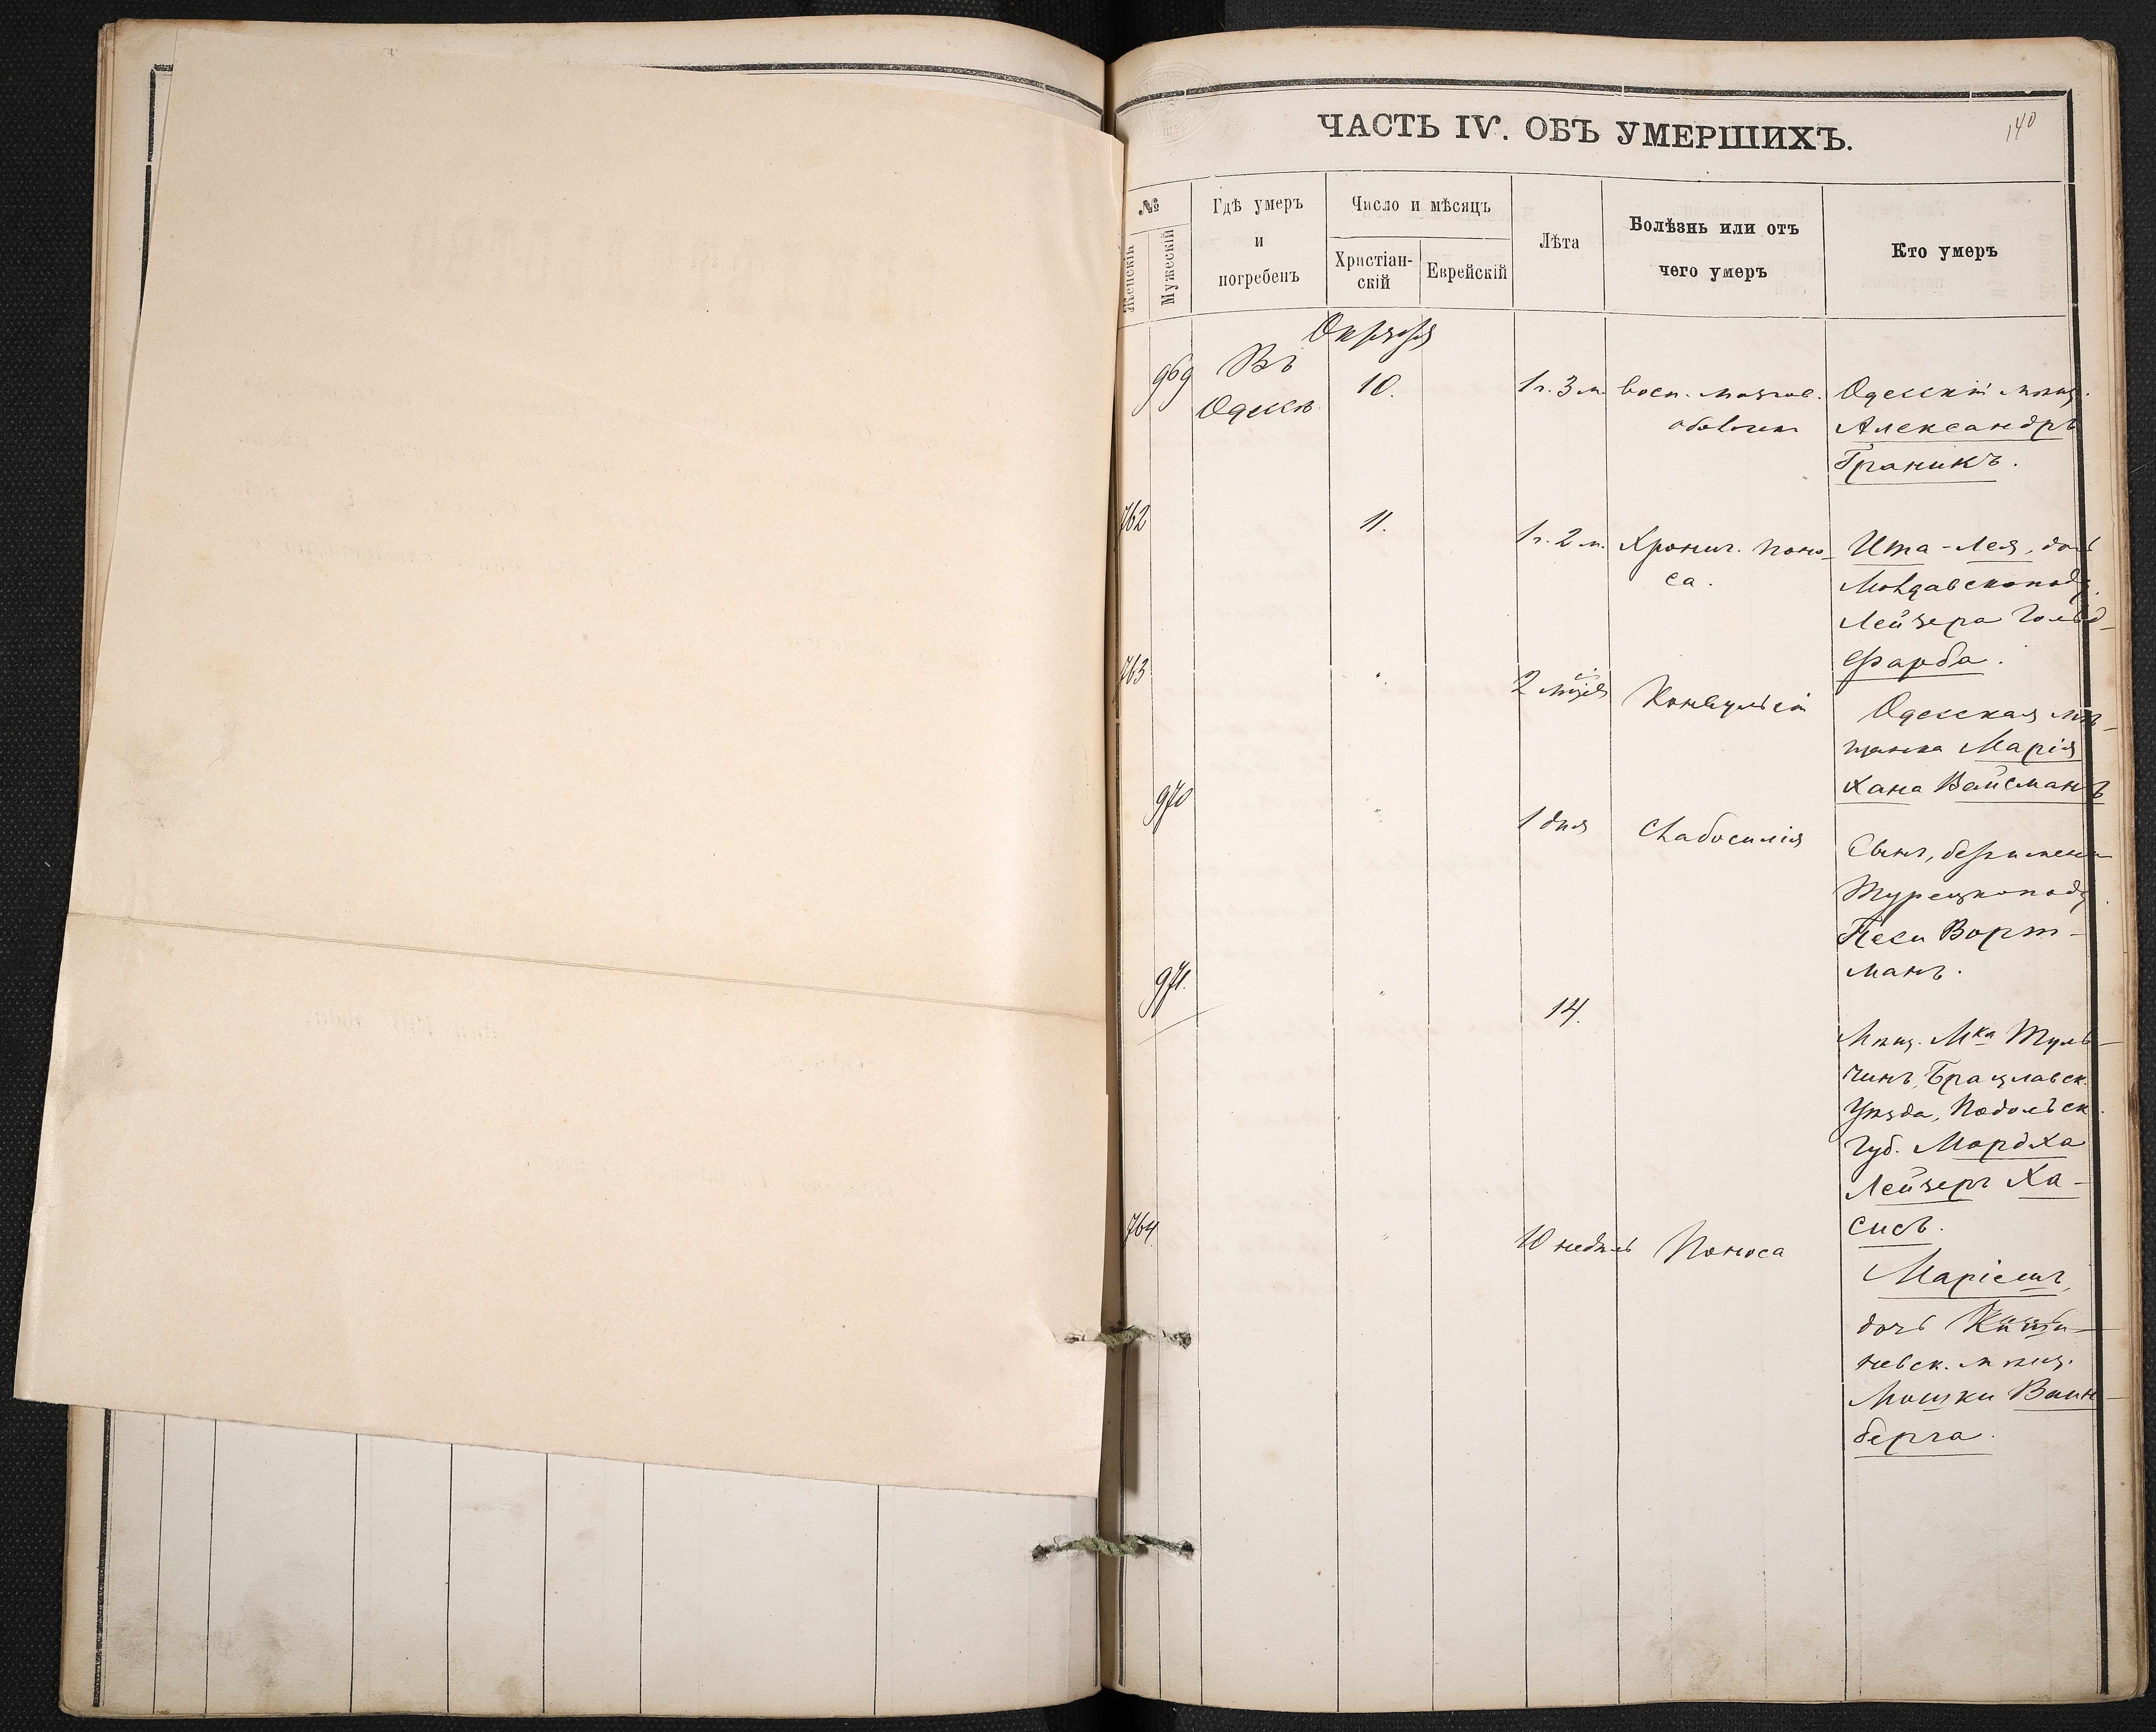 ЧАСТЬ IV. ОБЪ УМЕРШИХЪ.
140
№
Женскій
Мужескій
Гдѣ умеръ
и
погребенъ
Число и мѣсяцъ
Христіан-
скій
Еврейскій
Лѣта
Болѣзнь или отъ
чего умеръ
Кто умеръ
Октября
969
Въ
Одессѣ
10.
1 г. 3 м.
Восп. мозгов.
оболочки
Одесскій мѣщ.
Александръ
Граникъ.
762
11.
1 г. 2 м.
Хронич. Поно-
са.
Ита-Лея, дочь
Молдавскопод.
Лейзера Гольд-
фарба.
763
"
2 мѣс.
Конвульсіи
Одесская мѣ-
щанка Марія
Хана Вайсманъ
970
"
1 дня
Слабосилія
Сынъ, безъ имени
Турецкопод.
Песи Ворт-
манъ.
971.
"
14.
Мѣщ. Мка Туль-
чинъ, Брацлавск.
Уѣзда, Подольск.
Губ. Мордха
Лейзеръ Ха-
сисъ.
764.
"
10 недѣль
Поноса
Маріемъ,
дочь Киши-
невск. мѣщ.
Мошки Вайн-
берга.